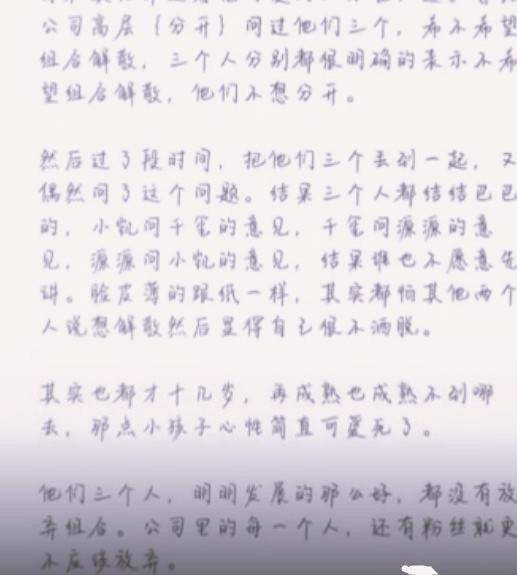 公司高层（分开）问过他们三个，希不希望
组合解散，三个人分别都很明确的表示不希
望组合解散，他们不想分开。
然后过了段时间，把他们三个丢到一起，又
偶然问了这个问题。结果三个人都结结巴巴
的，小凯问千玺的意见，千玺问源源的意
见，源源问小凯的意见，结果谁也不愿意先
讲。脸皮薄的跟纸一样，其实都怕其他两个
人说想解散然后显得自己很不洒脱。
其实也都才十几岁，再成熟也成熟不到哪
去，那点小孩子心性简直可爱死了。
他们三个人，明明发展的那么好，都没有放
弃组合。公司里的每一个人，还有粉丝就更
不应该放弃。